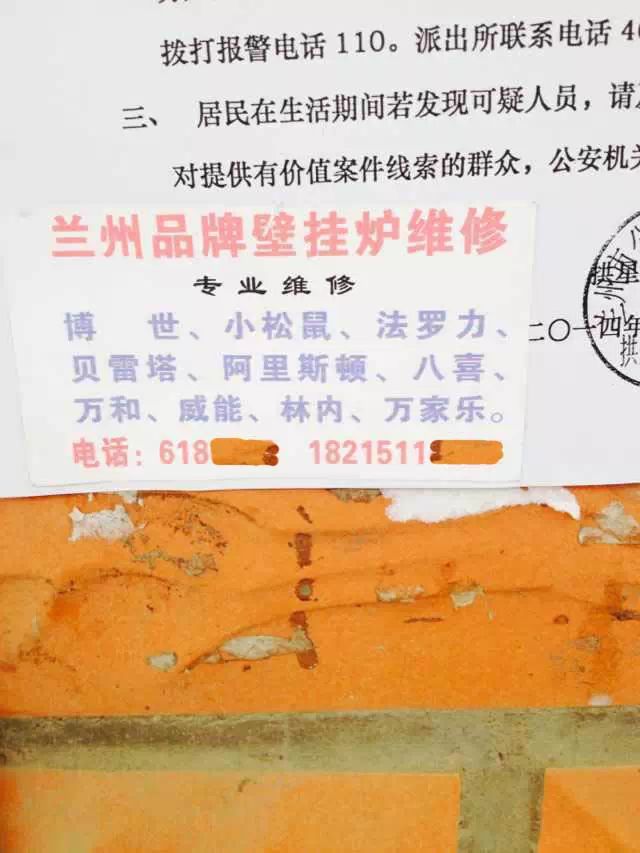 拨打报警电话 110。派出所联系电话 4
三、 居民在生活期间若发现可疑人员，请
对提供有价值案件线索的群众，公安机关
兰州品牌壁挂炉维修
专业维修
博 世、小松鼠、法罗力、
贝雷塔、阿里斯顿、八喜、
万和、威能、林内、万家乐。
电话：618 1821511
二〇一四年
拱星
兰州市公
拱